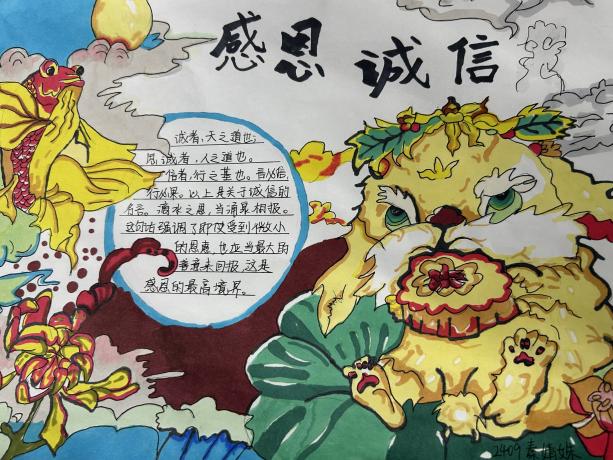 感恩 诚信
诚者，天之道也；
思诚者，人之道也。
信者，行之基也。言必信，
行必果。以上是关于诚信的
名言。滴水之恩，当涌泉相报。
这句话强调了即使受到微小
的恩惠，也应当最大的
来回报，这是
感恩的最高境界。
2409 秦